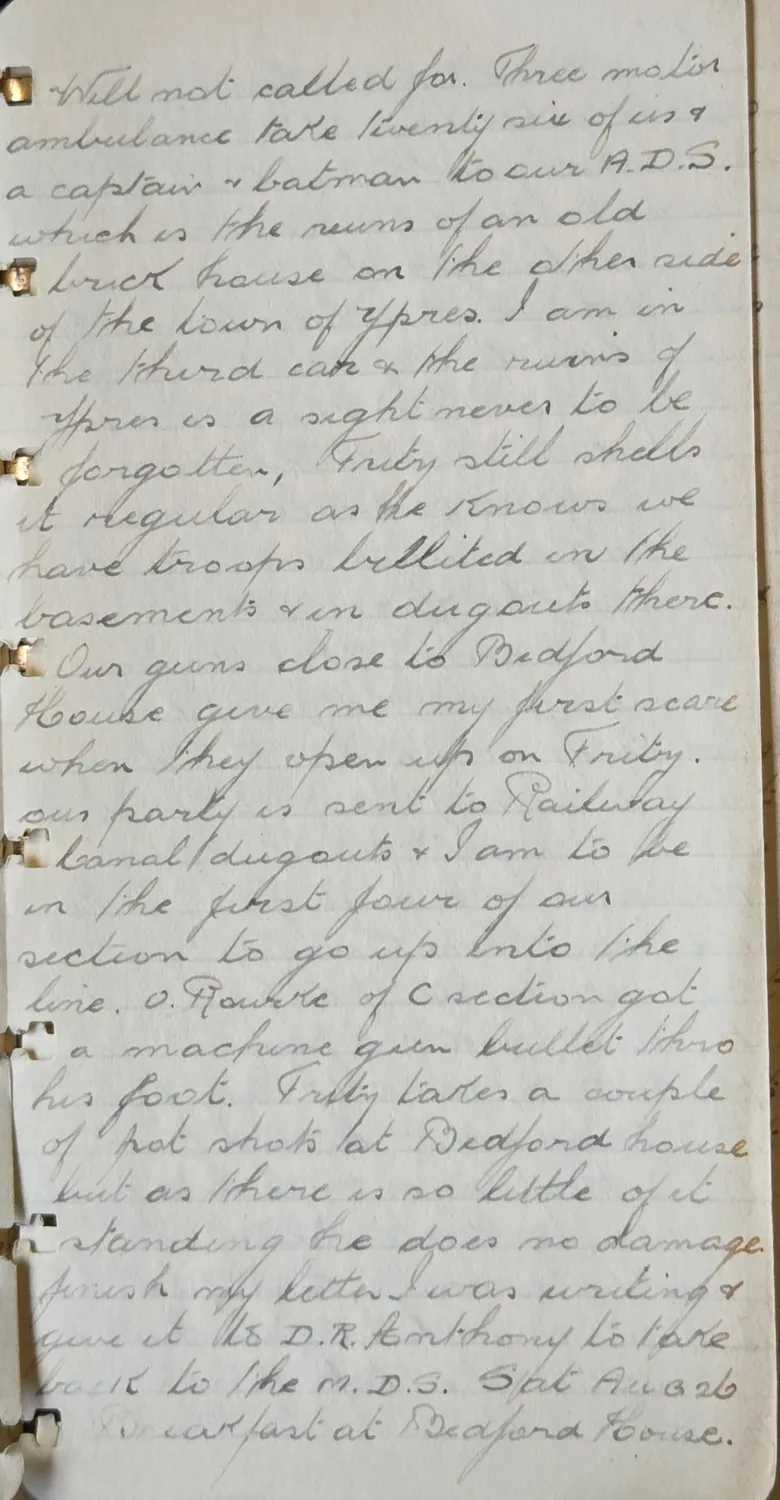 Will not called for. Three motor
ambulance take twenty six of us &
a captain & batman to our A.D.S.
which is the ruins of an old
brick house on the other side
of the town of Ypres. I am in
the third car & the ruins of
Ypres is a sight never to be
forgotten, Fritz still shells
it regular as he knows we
have troops billited in the
basements & in dugouts there.
Our guns close to Bedford
House give me my first scare
when they open up on Fritz.
our party is sent to Railway
Canal dugouts & I am to be
in the first four of our
section to go up into the
line. O.Rourke of C section got
a machine gun bullet thro
his foot. Fritz takes a couple
of pot shots at Bedford house
but as there is so little of it
standing he does no damage.
finish my letter I was writing &
give it to D.R. Anthony to take
back to the M.D.S. Sat Aug 26
Breakfast at Bedford House.